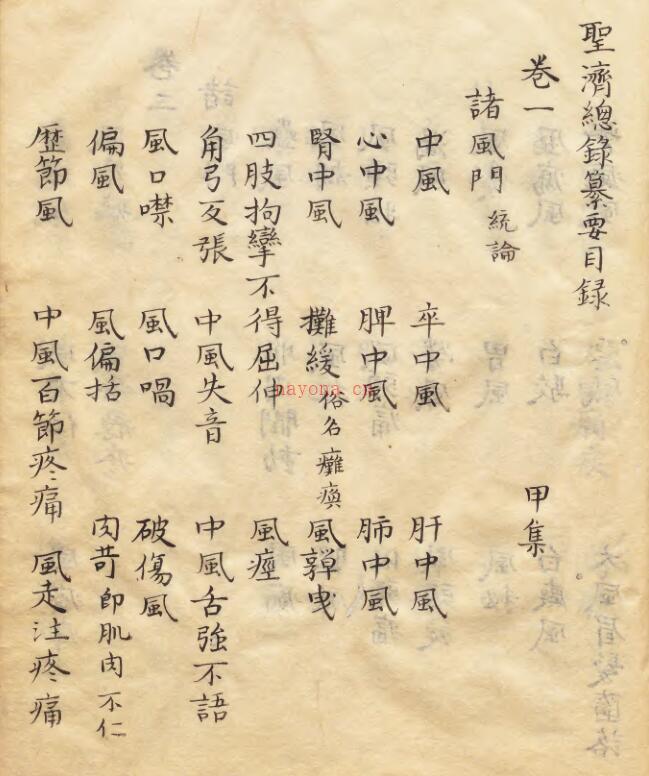 聖濟總錄纂要目録
卷一 甲集
諸風門 統論
中風 卒中風 肝中風
心中風 脾中風 肺中風
腎中風 攤緩 俗名癱瘓 風嚲曵
四肢拘攣不得屈伸 風痙
角弓反張 中風失音 中風舌強不語
風口噤 風口喎 破傷風
偏風 風偏括 肉苛 即肌肉不仁
歷節風 中風百節疼痛 風走注疼痛
nayona.cn